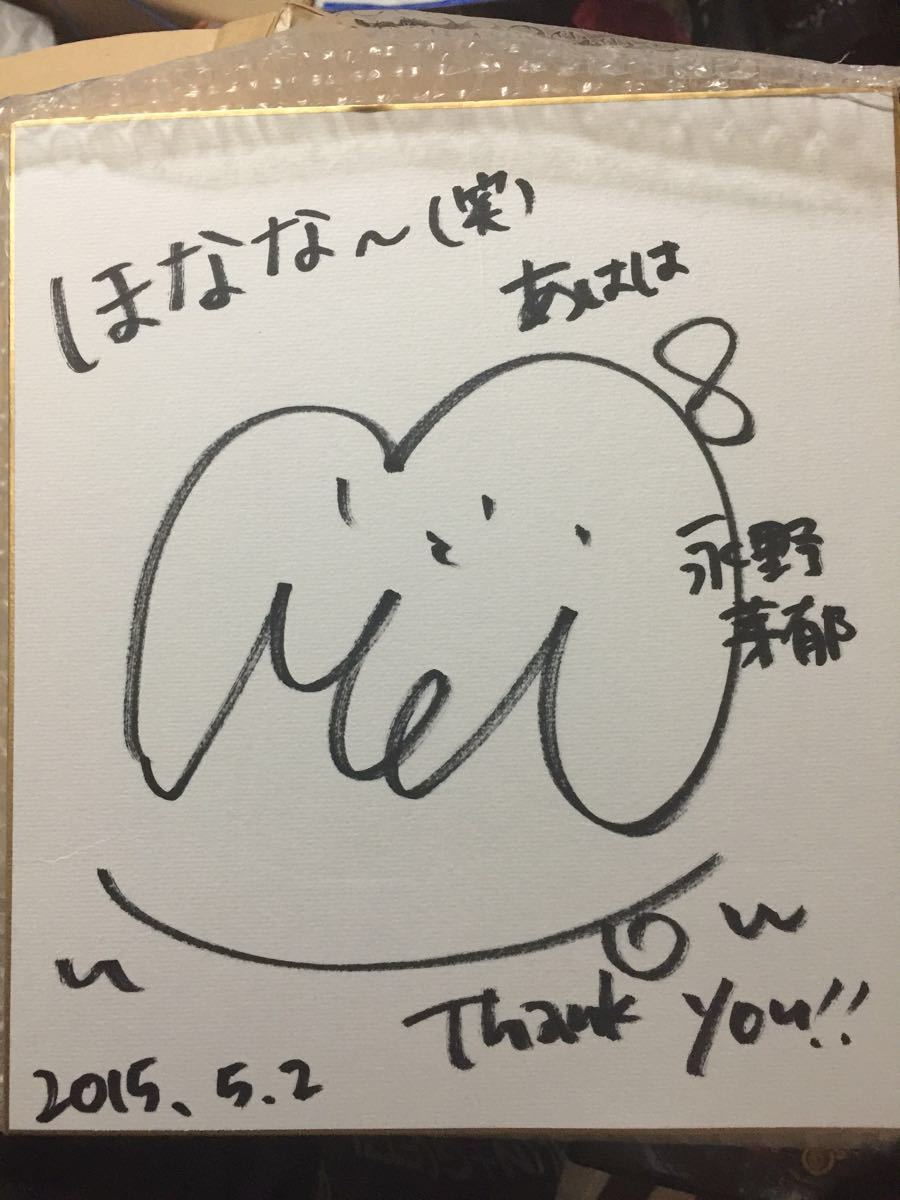 ほななな～(笑)
あはは
Mei
永野
芽郁
Thank you!!
2015.5.2